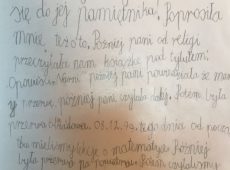 się do jej pamiętnika. Poprosiła
mnie też o to. Później pani od religi
przeczytała nam książkę pod tytułem:
Opowieści później pani powiedziała że mamy
przerwę, później pani czytała dalej. Potem była
przerwa obiadowa. 08.12.
mieliśmy lekcje z matematyki. Później
była przerwa na powietrzu. Potem czytaliśmy